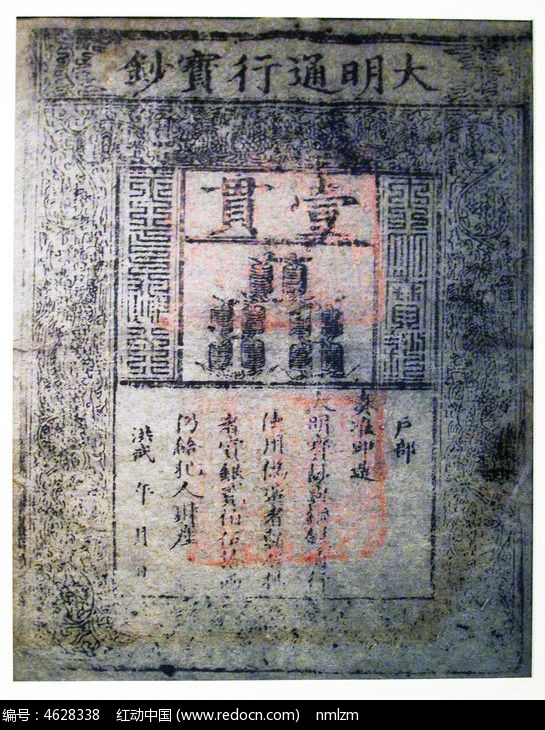 大明通行寳鈔
壹貫
大明寳鈔
天下通行
戶部
奏准印造
大明寳鈔與銅錢通行
使用偽造者斬告捕
者賞銀貳伯伍拾兩
仍給犯人財產
洪武 年 月 日
编号：4628338 红动中国 (www.redocn.com) nmlzm